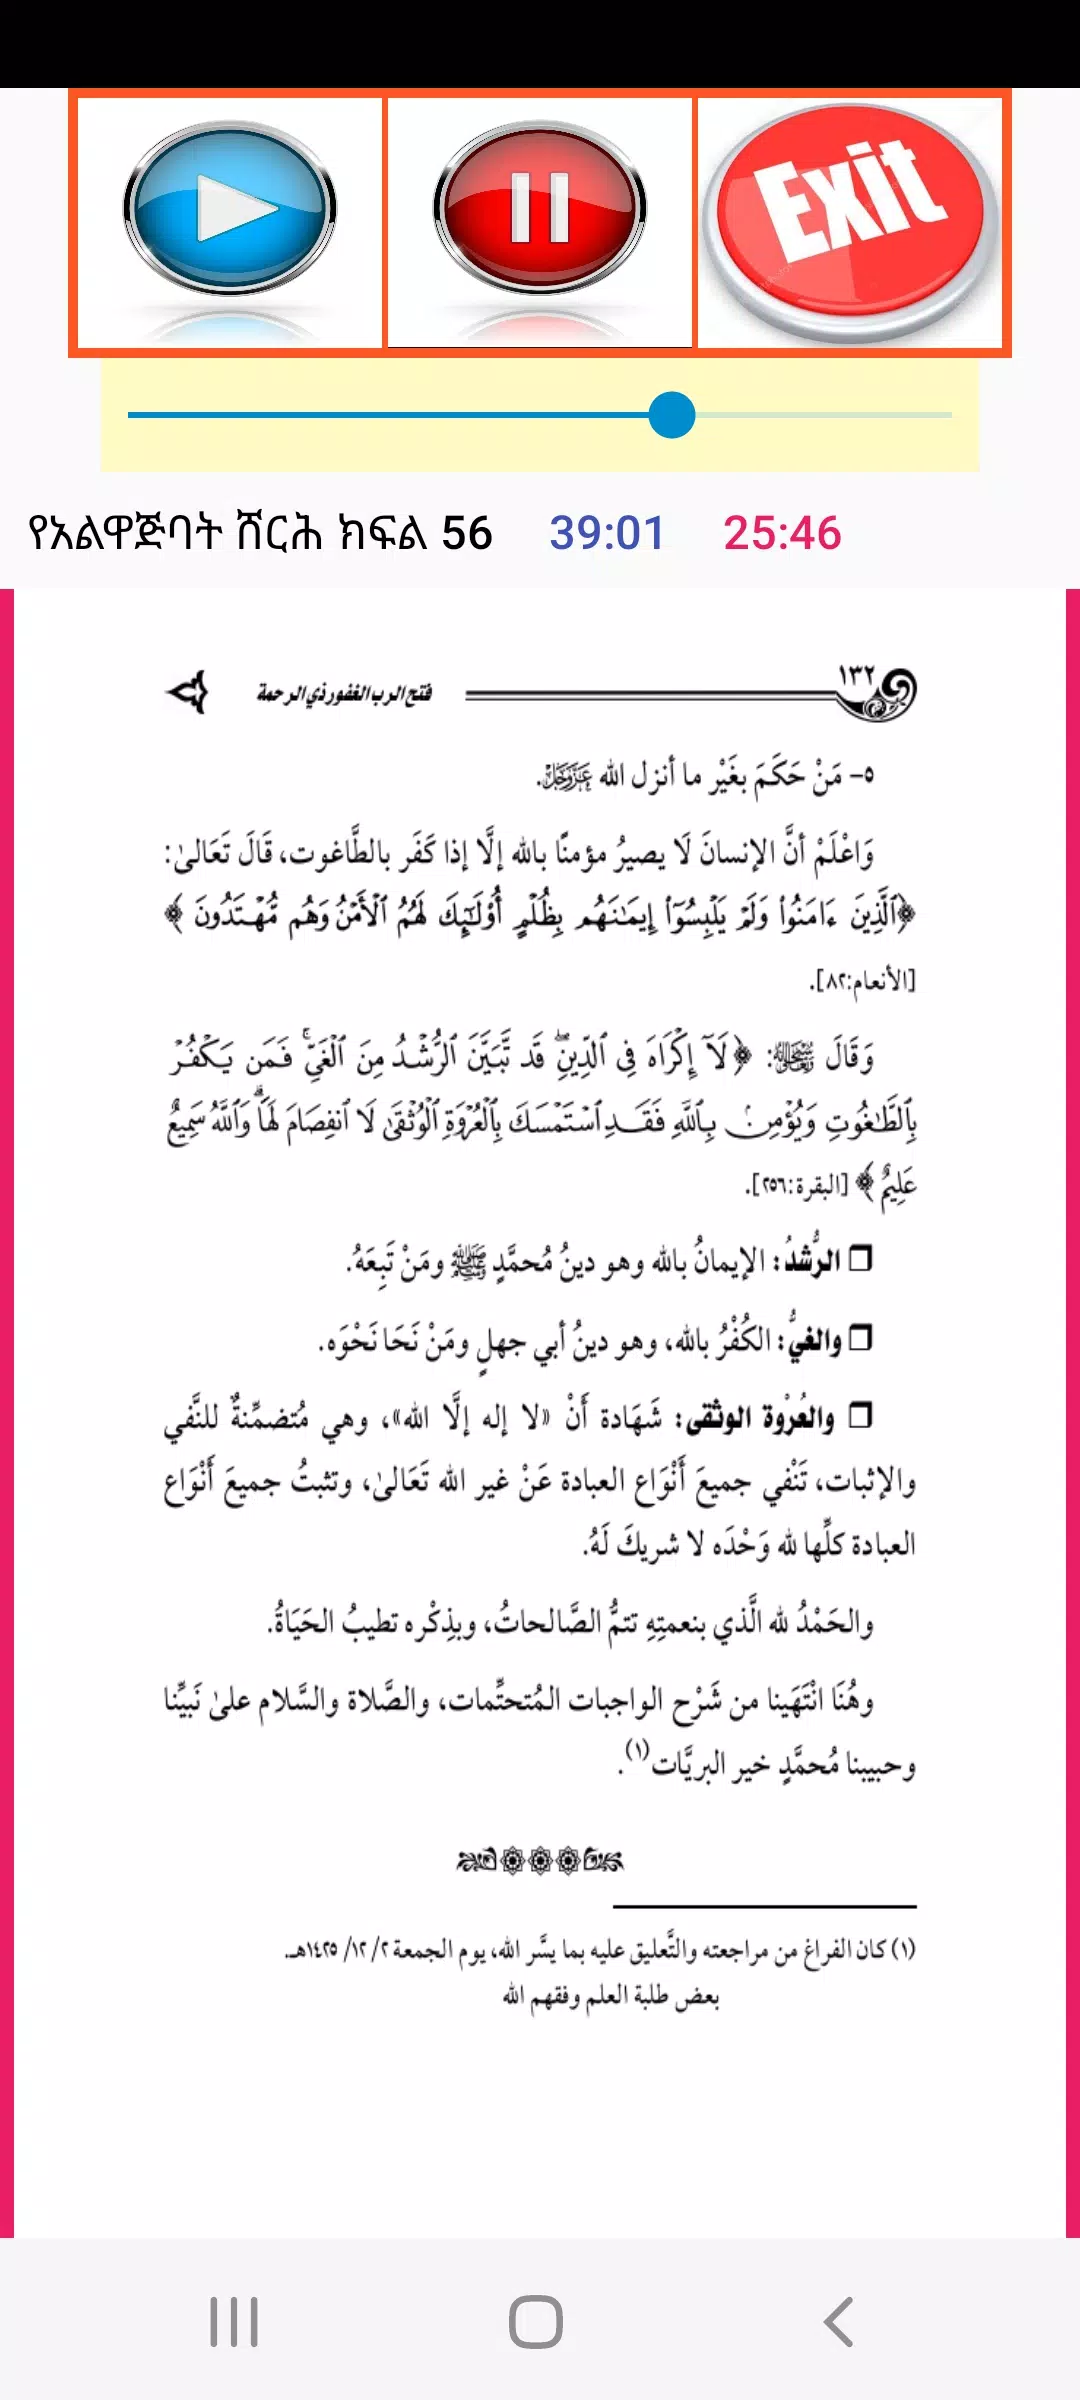 Exit
የአልዋጅባት ሸርሕ ክፍል 56 39:01 25:46
١٣٢ فتح الرب الغفور ذي الرحمة
٥- مَنْ حَكَمَ بغَيْر ما أنزل الله عَزَّوَجَلَّ.
وَاعْلَمْ أنَّ الإنسانَ لَا يصيرُ مؤمنًا بالله إلَّا إذا كَفَر بالطَّاغوت، قَالَ تَعَالىٰ:
﴿ٱلَّذِينَ ءَامَنُوا۟ وَلَمْ يَلْبِسُوٓا۟ إِيمَـٰنَهُم بِظُلْمٍ أُو۟لَـٰٓئِكَ لَهُمُ ٱلْأَمْنُ وَهُم مُّهْتَدُونَ﴾
[الأنعام:٨٢].
وَقَالَ سُبْحَانَهُ وَتَعَالَىٰ: ﴿لَآ إِكْرَاهَ فِى ٱلدِّينِ ۖ قَد تَّبَيَّنَ ٱلرُّشْدُ مِنَ ٱلْغَىِّ ۚ فَمَن يَكْفُرْ
بِٱلطَّـٰغُوتِ وَيُؤْمِنۢ بِٱللَّهِ فَقَدِ ٱسْتَمْسَكَ بِٱلْعُرْوَةِ ٱلْوُثْقَىٰ لَا ٱنفِصَامَ لَهَا ۗ وَٱللَّهُ سَمِيعٌ
عَلِيمٌ﴾ [البقرة:٢٥٦].
❒ الرُّشدُ: الإيمانُ بالله وهو دينُ مُحمَّدٍ ﷺ ومَنْ تَبِعَهُ.
❒ والغيُّ: الكُفْرُ بالله، وهو دينُ أبي جهلٍ ومَنْ نَحَا نَحْوَه.
❒ والعُرْوة الوثقى: شَهَادة أَنْ «لا إله إلَّا الله»، وهي مُتضمِّنةٌ للنَّفي
والإثبات، تَنْفي جميعَ أَنْوَاع العبادة عَنْ غير الله تَعَالىٰ، وتثبتُ جميعَ أَنْوَاع
العبادة كلِّها لله وَحْدَه لا شريكَ لَهُ.
والحَمْدُ لله الَّذي بنعمتِهِ تتمُّ الصَّالحاتُ، وبذِكْره تطيبُ الحَيَاةُ.
وهُنَا انْتَهَينا من شَرْح الواجبات المُتحتِّمات، والصَّلاة والسَّلام علىٰ نَبيِّنا
وحبيبنا مُحمَّدٍ خير البريَّات(١).
(١) كان الفراغ من مراجعته والتَّعليق عليه بما يسَّر الله، يوم الجمعة ٢/ ١٢/ ١٤٢٥هـ.
بعض طلبة العلم وفقهم الله